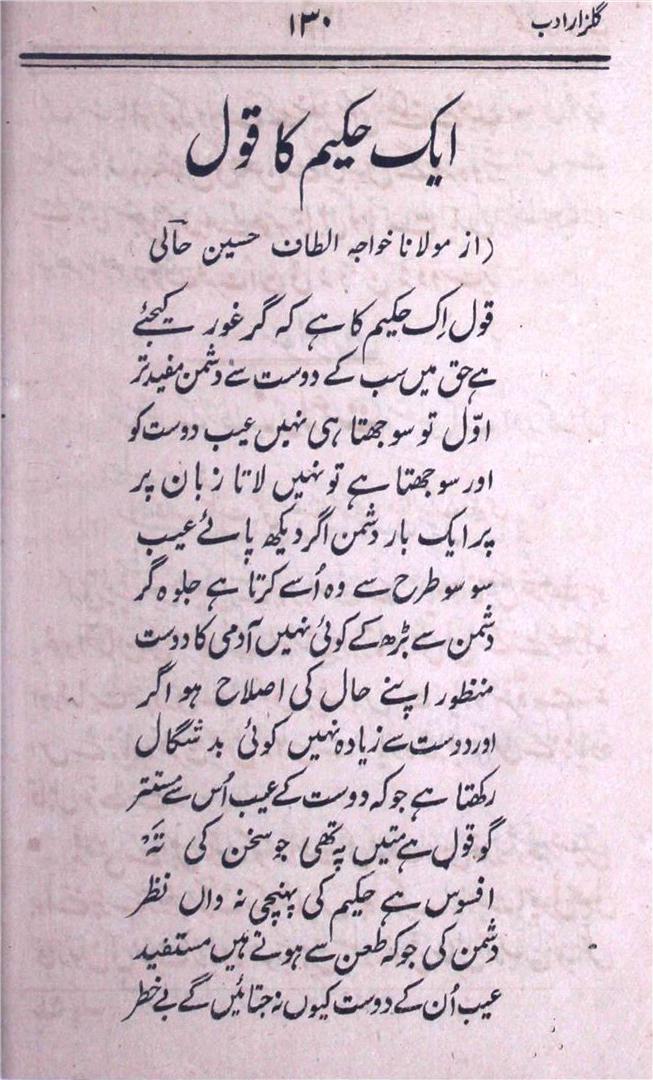 گلزار ادب
۱۳۰
ایک حکیم کا قول
(از مولانا خواجہ الطاف حسین حالی)
قول اِک حکیم کا ہے کہ گر غور کیجئے
ہے حق میں سب کے دوست سے دشمن مفید تر
اوّل تو سوجھتا ہی نہیں عیب دوست کو
اور سوجھتا ہے تو نہیں لاتا زبان پر
پر ایک بار دشمن اگر دیکھ پائے عیب
سو سو طرح سے وہ اُسے کرتا ہے جلوہ گر
دشمن سے بڑھ کے کوئی نہیں آدمی کا دوست
منظور اپنے حال کی اصلاح ہو اگر
اور دوست سے زیادہ نہیں کوئی بد شگال
رکھتا ہے جو کہ دوست کے عیب اُس سے مستتر
گو قول ہے متیں پہ تھی جو سخن کی تہ
افسوس ہے حکیم کی پہنچی نہ واں نظر
دشمن کی جو کہ طعن سے ہوتے ہیں مستفید
عیب اُن کے دوست کیوں نہ جتائیں گے بے خطر